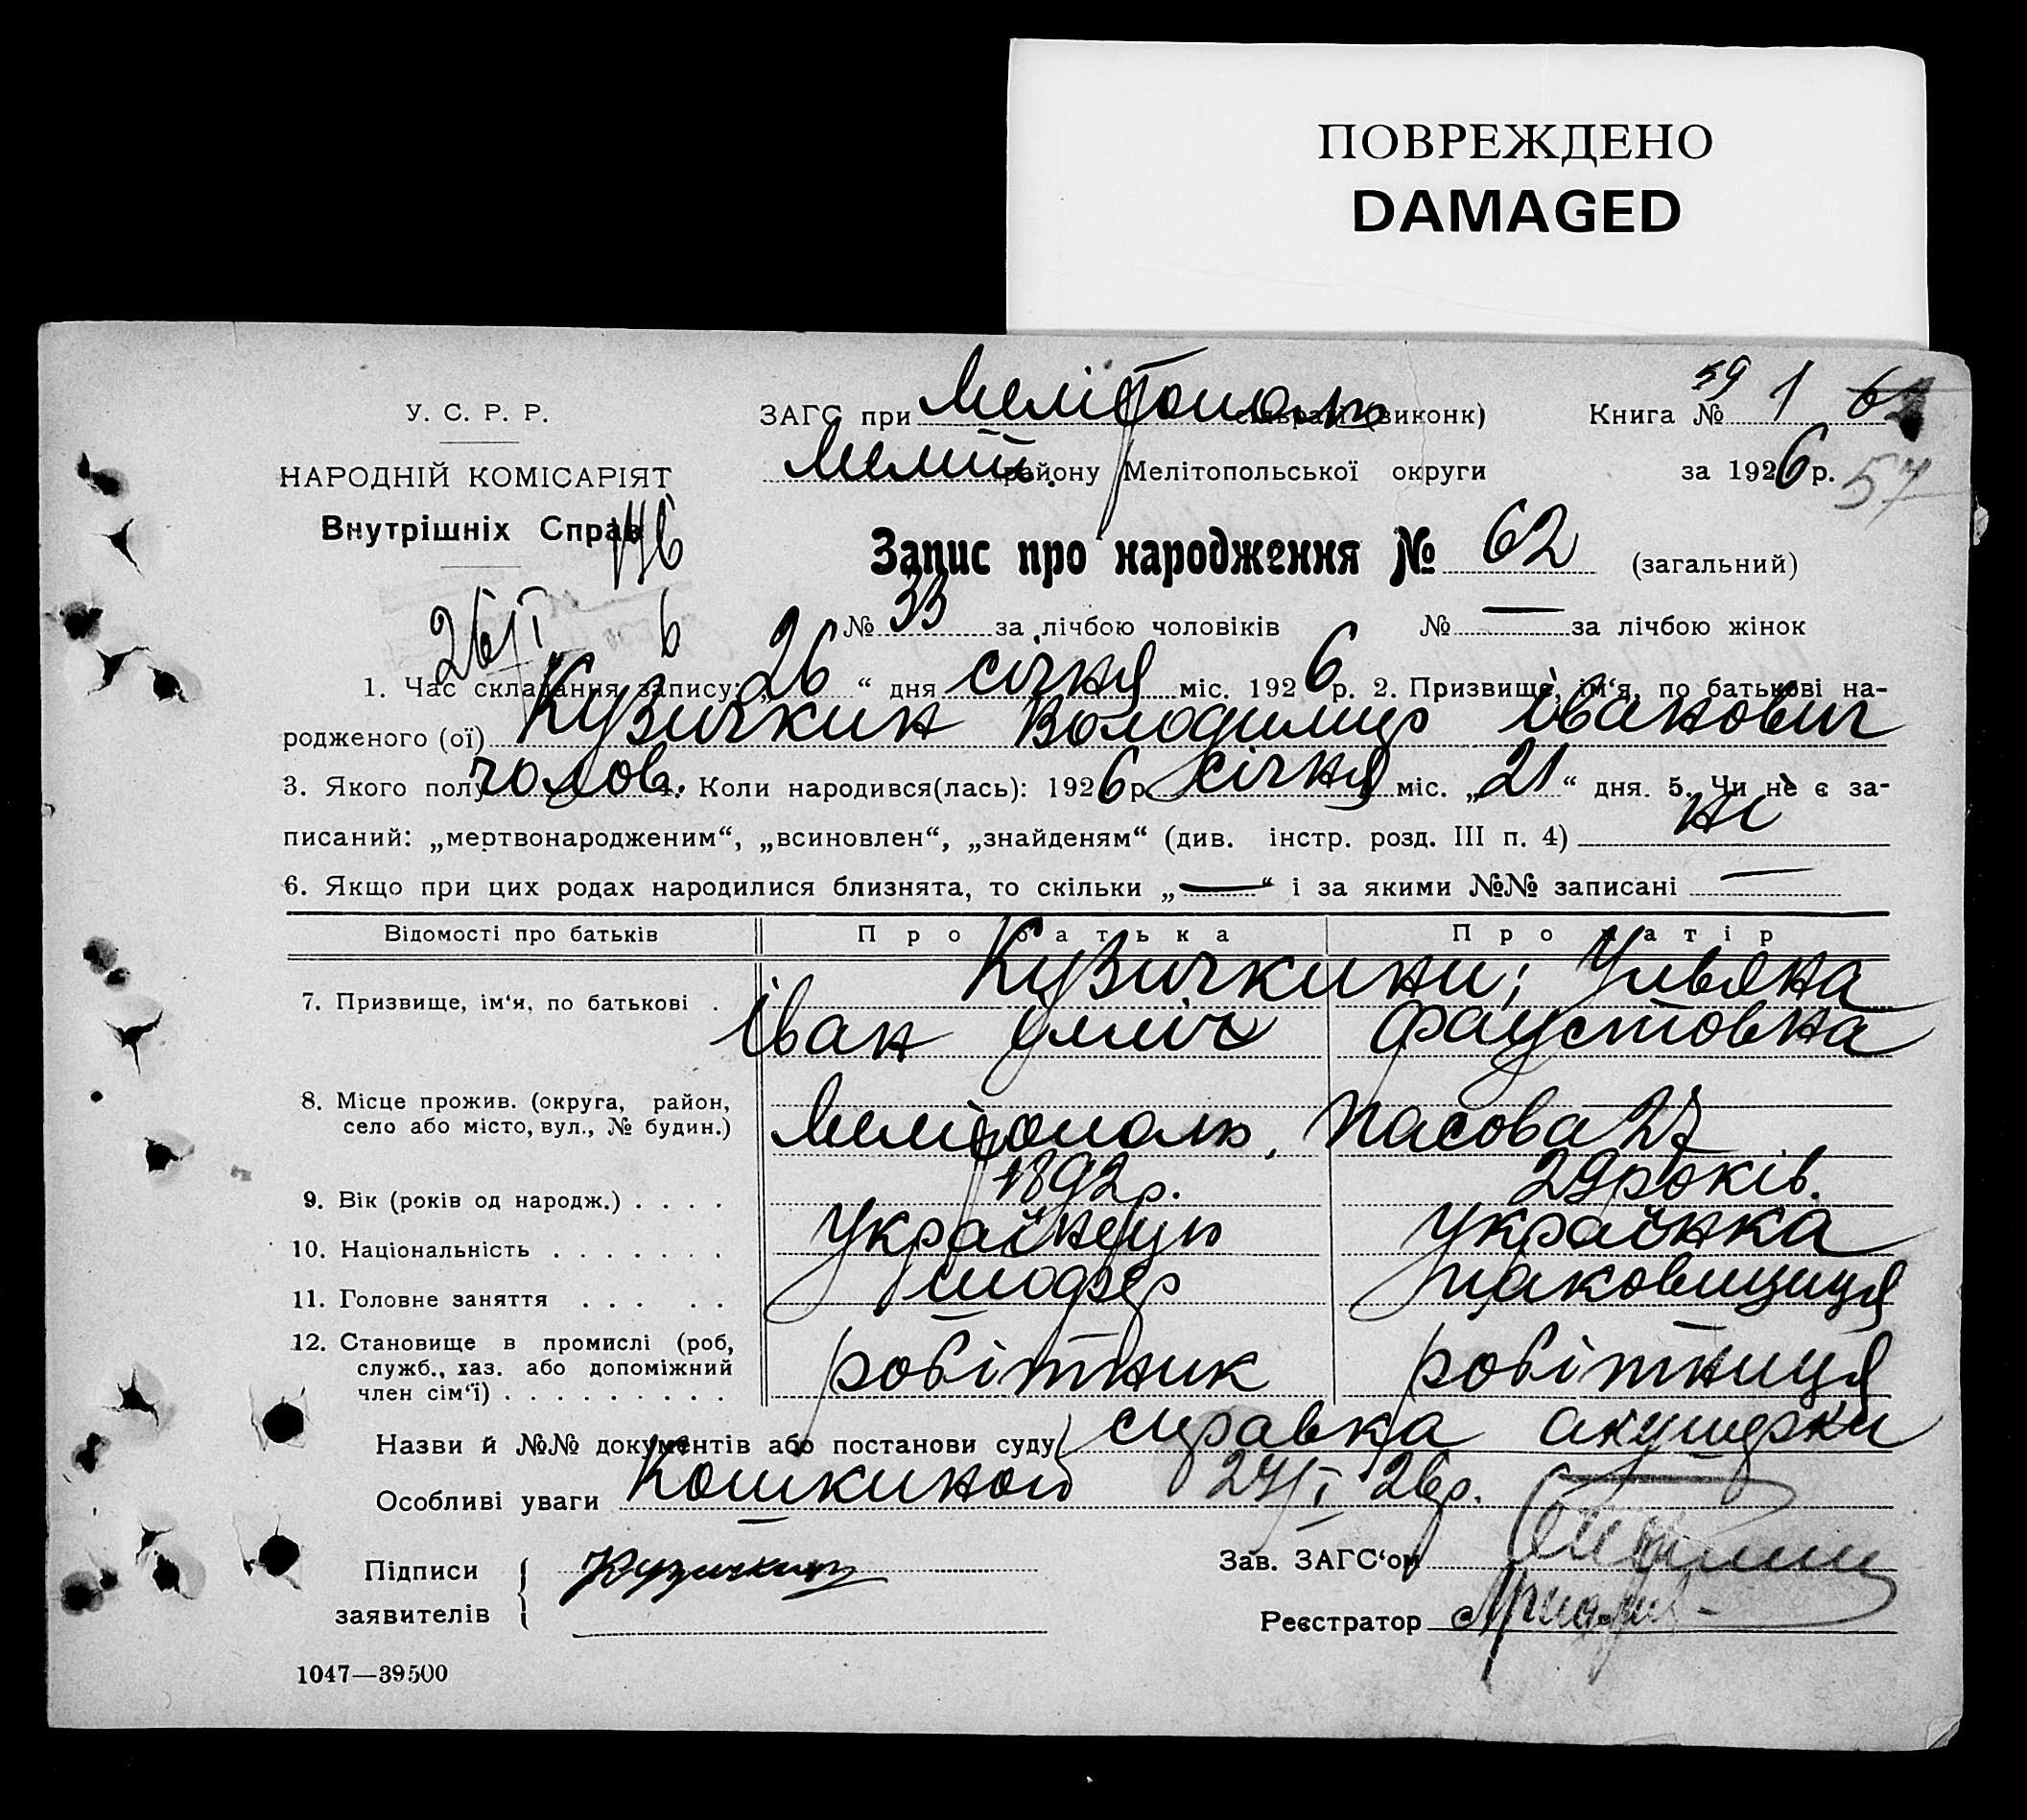 ПОВРЕЖДЕНО
DAMAGED
У. С. Р. Р.
НАРОДНІЙ КОМІСАРІЯТ
Внутрішніх Справ
146
26/I 6
ЗАГС при Мелітополь сільраді (виконк)
Меліт. району Мелітопольської округи
59
Книга № 1 62
за 1926 р. 57
Запис про народження № 62 (загальний)
№ 33 за лічбою чоловіків № — за лічбою жінок
1. Час складання запису: „26“ дня січня міс. 1926 р. 2. Призвище, ім‘я, по батькові на-
родженого (ої) Кузичкин Володимир Іванович
3. Якого полу чолов. Коли народився(лась): 1926 р. січня міс. „21“ дня. 5. Чи не є за-
писаний: „мертвонародженим“, „всиновлен“, „знайденям“ (див. інстр. розд. III п. 4) ні
6. Якщо при цих родах народилися близнята, то скільки „—“ і за якими №№ записані —
Відомості про батьків Про батька Про матір
7. Призвище, ім‘я, по батькові . Кузичкини; Ульяна
Іван Фаустовна
8. Місце прожив. (округа, район,
село або місто, вул., № будин.) Мелітополь, 27
9. Вік (років од народж.) . . . . 1892 р. 29 років.
10. Національність . . . . . . . Українець Українка
11. Головне заняття . . . . . шофер паковщиця
12. Становище в промислі (роб,
служб., хаз. або допоміжний
член сім‘ї) . . . . . . . . . робітник робітниця
Назви й №№ документів або постанови суду справка акушерки
Особливі уваги Кошкиной 27/I 26 р.
Підписи
заявителів
Кузичкин
Зав. ЗАГС‘ом
Реєстратор
1047—39500